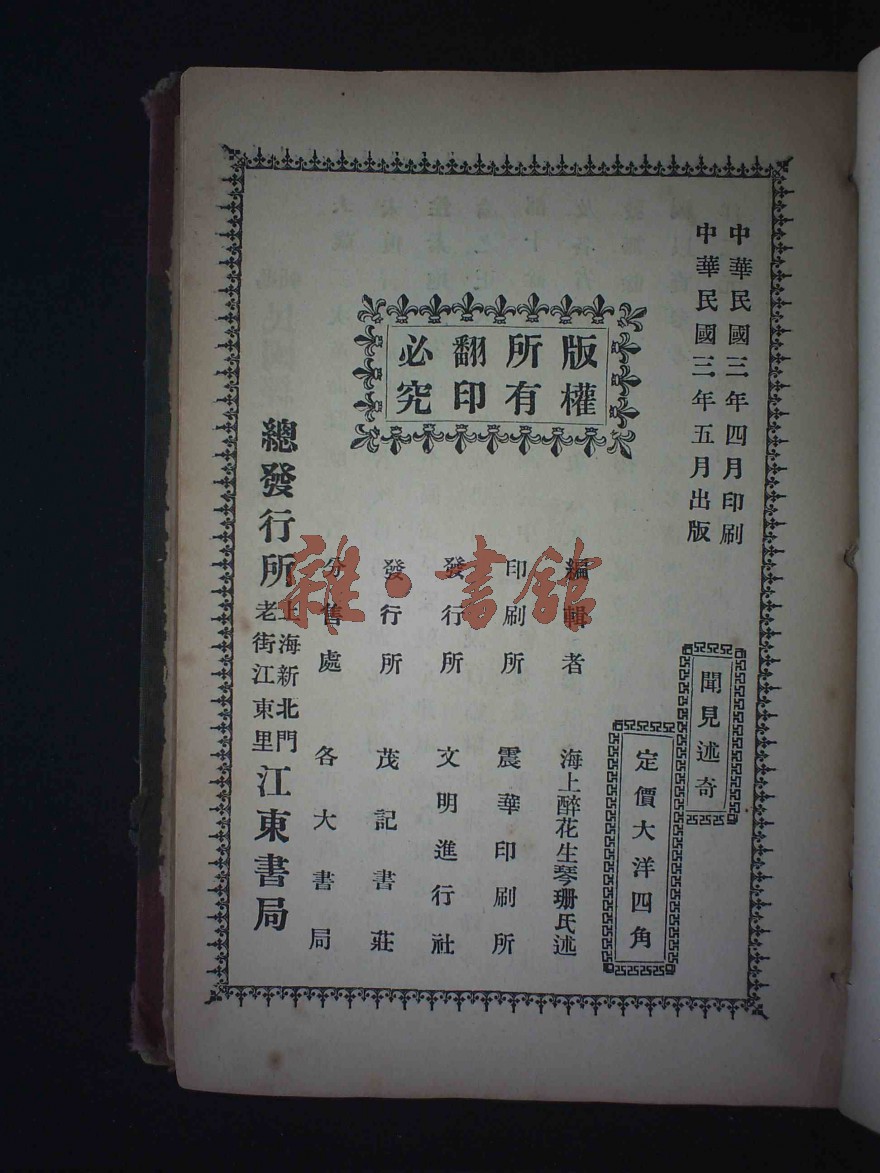 中華民國三年四月印刷
中華民國三年五月出版
聞見述奇
定價大洋四角
版權
所有
翻印
必究
編輯者　海上醉花生琴珊氏述
印刷所　震華印刷所
發行所　文明進行社
發行所　茂記書莊
分售處　各大書局
總發行所　上海新北門
老街江東里　江東書局
雜·書館